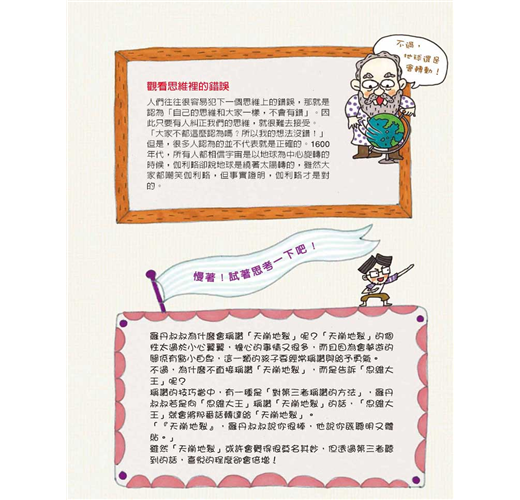 不過，
地球還是
會轉動！
觀看思維裡的錯誤
人們往往很容易犯下一個思維上的錯誤，那就是
認為「自己的思維和大家一樣，不會有錯」。因
此只要有人糾正我們的思維，就很難去接受。
「大家不都這麼認為嗎？所以我的想法沒錯！」
但是，很多人認為的並不代表就是正確的。1600
年代，所有人都相信宇宙是以地球為中心旋轉的
時候，伽利略卻說地球是繞著太陽轉的，雖然大
家都嘲笑伽利略，但事實證明，伽利略才是對
的。
慢著！試著思考一下吧！
羅丹叔叔為什麼會稱讚「天崩地裂」呢？「天崩地裂」的個
性太過於小心翼翼，擔心的事情又很多，而且因為會夢遊的
關係有點小自卑，這一類的孩子要經常稱讚與給予勇氣。
不過，為什麼不直接稱讚「天崩地裂」，而是告訴「忍錐大
王」呢？
稱讚的技巧當中，有一種是「對第三者稱讚的方法」，羅丹
叔叔若是向「忍錐大王」稱讚「天崩地裂」的話，「忍錐大
王」就會將那番話轉達給「天崩地裂」。
「『天崩地裂』，羅丹叔叔說你很棒，他說你既聰明又體
貼。」
雖然「天崩地裂」或許會覺得很莫名其妙，但透過第三者聽
到的話，喜悅的程度卻會倍增！